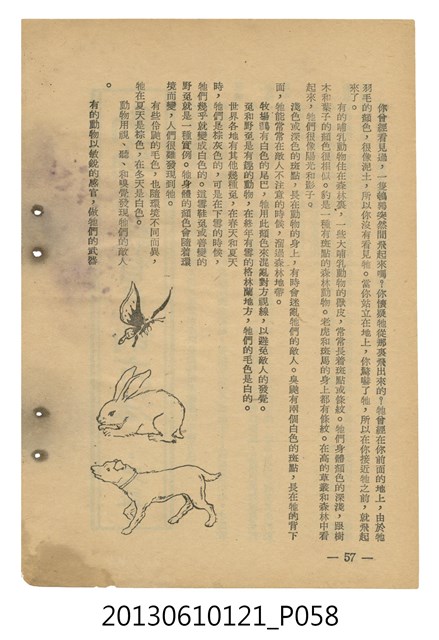 你曾經看見過，一隻鵪鶉突然間飛起來嗎？你懷疑牠從那裏飛出來的？牠曾經在你前面的地上，由於牠
羽毛的顏色，很像泥土，所以你沒有看見牠。當你站立在地上，你驚嚇了牠，所以在你接近牠之前，就飛起
來了。
有的哺乳動物住在森林裏，一些大哺乳動物的獸皮，常常長着斑點或條紋。牠們身體顏色的深淺，跟樹
木和葉子的顏色很相似。豹是一種有斑點的森林動物。老虎和斑馬的身上都有條紋。在高的草叢和森林中看
起來，牠們很像陽光和影子。
淺色或深色的斑點，長在動物的身上，有時會迷亂牠們的敵人。臭鼬有兩個白色的斑點，長在牠的背下
面，牠能常常在敵人不注意的時候，溜過森林地帶。
牧場鷚有白色的尾巴，牠用此顏色來混亂對方視線，以避免敵人的發覺。
兔和野兔是有趣的動物，在終年有雪的格林蘭地方，牠們的毛色是白的。
世界各地有其他幾種兔，在春天和夏天
時，牠們是棕灰色的，可是在下雪的時候，
牠們幾乎就變成白色的。這雪鞋兔或善變的
野兔就一種實例。牠身體的顏色會隨着環
境而變，人們很難發現到牠。
有些伶鼬的毛色，也隨環境不同而異，
牠在夏天是棕色，在冬天是白色。
動物用視、聽、和嗅覺發現牠們的敵人
。
有的動物以敏銳的感官，做牠們的武器
— 57 —
20130610121_P058